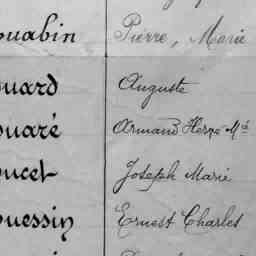 ouabin Pierre, Marie
ouard Auguste
ouaré Armand Hervé Mie
oucet Joseph Marie
ouessin Ernest Charles